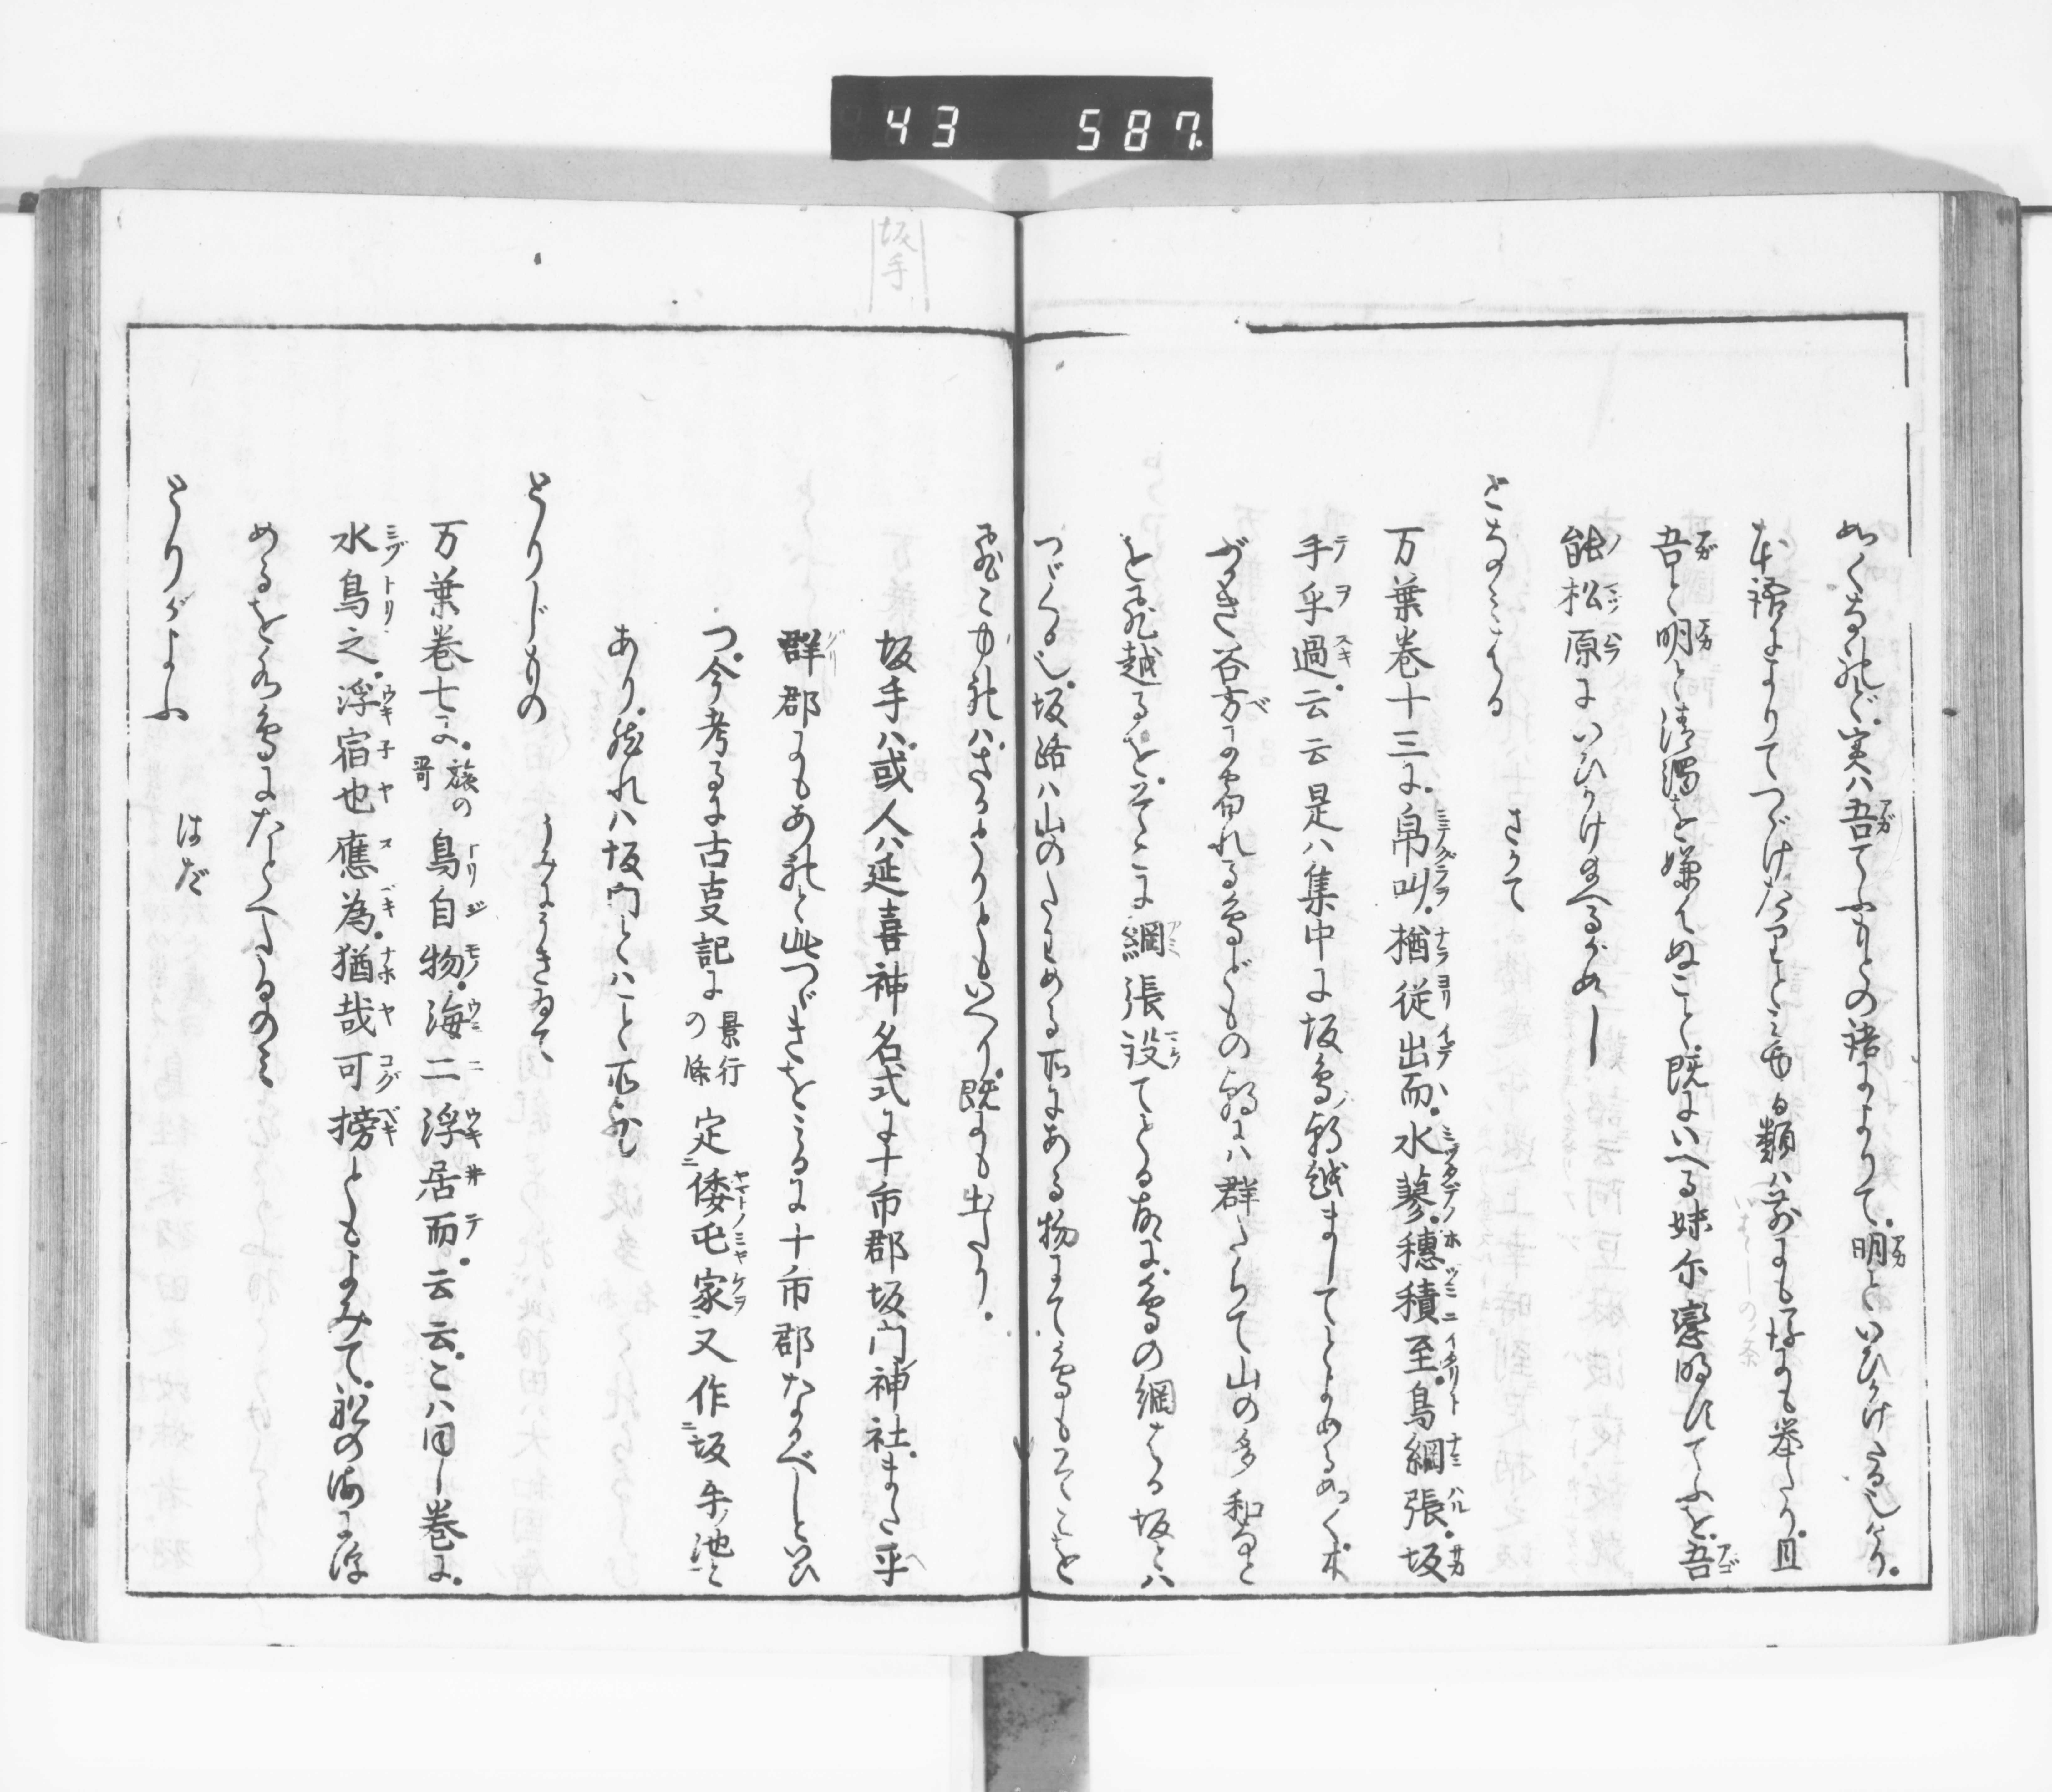 43 587
めくなれど。実ハ吾てふもとの語によりて。明といひかけたる也けり。
本語によりてつゞけたりとみゆる類ハ前にも後にも挙たり。且
吾と明と清濁を嫌はぬこと。既にいへる妹尓戀明須てふを。吾
能松原にいひかけ給へるがめし
となみはる さかて
万葉巻十三に。帛叫。楢従出而。水蓼。穂積至。鳥綱張。坂
手乎過。云云是ハ集中に坂鳥ノ朝越ましてとよめるめく。木
ぶかき谷方に宿れる鳥どもの朝にハ群たちて山の多和など
を飛越るを。そこに綱張設てとる故に。鳥の綱はる坂とハ
つゞくる也。坂路ハ山のたわめる所にある物にて鳥もそこを
飛こゆれハ。さかとりともいへり。既にも出たり。
坂手
坂手ハ。或人ハ延喜神名式に十市郡坂門神社。また平
群郡にもあれと此つゞきをみるに十市郡なるべしといひ
つ。今考るに古事記に景行の條定倭屯家又作坂手池と
あり。然れハ坂門とハこと所也
とりじもの うみにうきゐて
万葉巻七に。旅の哥鳥自物。海二浮居而。云云。こハ同し巻に。
水鳥之。浮宿也應為。猶哉可榜ともよみて。船の海に浮
めるを水鳥にたとへたるのミ
とりがよふ はだ